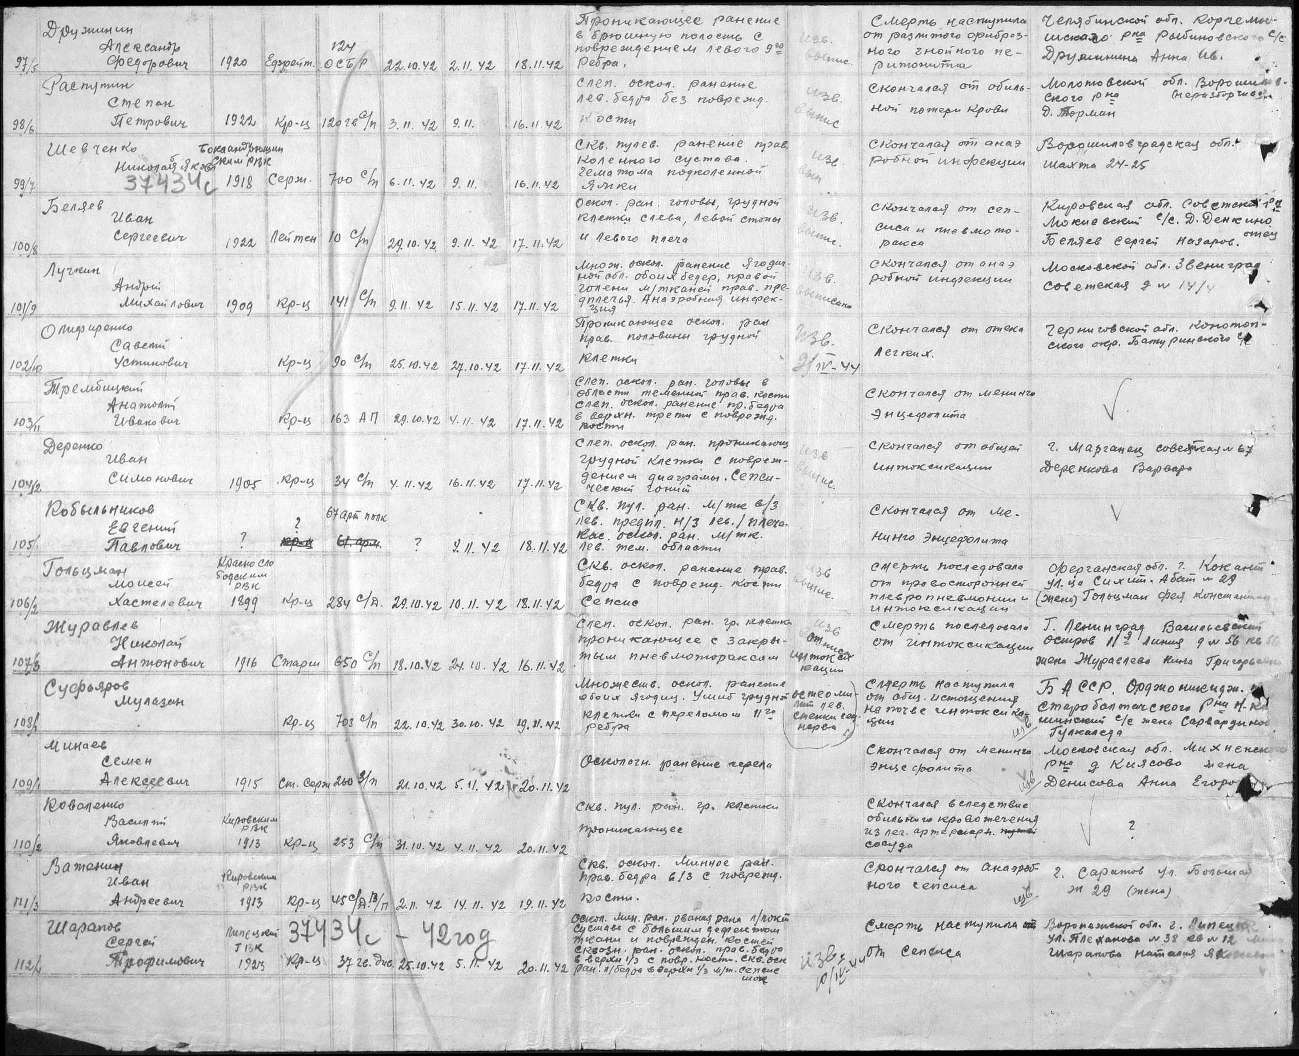 97/5 Дружинин Александр Федорович 1920 Ефрейт. 124 ОСБР 22.10.42 2.11.42 18.11.42 Проникающее ранение в брюшную полость с повреждением левого 9го ребра. изв. Смерть наступила от разлитого фиброзного гнойного перитонита Челябинской обл. рна Рыбиновского с/с Дружинина Анна Ив.
98/6 Распутин Степан Петрович 1922 Кр-ц 120 гв с/п 3.11.42 9.11. 16.11.42 Слеп. оскол. ранение лев. бедра без поврежд. кости изв. Скончался от обильной потери крови Молотовской обл. рна Д. Торман
99/7 Шевченко Николай РВК 37434с 1918 Серж. 700 с/п 6.11.42 9.11. 16.11.42 Скв. пулев. ранение прав. коленного сустава. Гематома подколенной ямки изв Скончался от анаэробной инфекции Ворошиловградская обл. шахта 24-25
100/8 Беляев Иван Сергеевич 1922 Лейтен 10 с/п 29.10.42 9.11.42 17.11.42 Оскол. ран. головы, грудной клетки слева, левой стопы и левого плеча изв. Скончался от сепсиса и пневмоторакса Кировская обл. Советской рн с/с. Д. Денкино отец Беляев Сергей Назаров.
101/9 Лучкин Андрей Михайлович 1909 Кр-ц 141 с/п 9.11.42 15.11.42 17.11.42 Множ. оскол. ранение ягодичной обл. обоих бедер, правой голени м/тканей прав. предплечья. Анаэробния инфекция изв. Скончался от анаэробной инфекции Московской обл. Звениград Советская д №
102/10 Олифиренко Савелий Устинович Кр-ц 90 с/п 25.10.42 27.10.42 17.11.42 Проникающее оскол. ран прав. половины грудной клетки изв. 21/IV-44 Скончался от отека легких. Черниговской обл. Конотопского окр. Батуринского с/с
103/11 Трембицкий Анатолий Иванович Кр-ц 163 АП 29.10.42 4.11.42 17.11.42 Слеп. оскол. ран. головы в области теменной прав. кости Слеп. оскол. ранение пр. бедра в верхн. трети с поврежд. кости Скончался от менинго энцефолита
104/2 Деренко Иван Симонович 1905 Кр-ц 34 с/п 4.11.42 16.11.42 17.11.42 Слеп. оскол. ран. проникающ. грудной клетки с повреждением диаграмы. Сепсический изв Скончался от общей интоксикации г. Марганец советская № 67 Деренкова Варвара
105/1 Кобыльников Евгений Павлович ? ? Кр-ц 67 арт полк ? 9.11.42 18.11.42 Скв. пул. ран. м/тк в/3 лев. предпл. н/3 лев. плеча. Кас. оскол. ран. м/тк лев. тем. области Скончался от менинго энцефолита
106/2 Гольцман Моисей Хастелевич Краснослободским РВК 1899 Кр-ц 284 с/д. 29.10.42 10.11.42 18.11.42 Скв. оскол. ранение прав. бедра с поврежд. кости Сепсис изв Смерть последовала от правосторонней плевропневмонии и интоксикации Ферганская обл. г. Коканд № 29 (жена) Гольцман Фея
107/3 Журавлев Николай Антонович 1916 Старш 650 с/п 18.10.42 24.10.42 16.11.42 Слеп. оскол. ран. гр. клетки проникающее с закрытым пневмотораксом изв от интоксикации Смерть последовала от интоксикации Г. Ленинград Васильевский остров 11я линия д № 56 кв жена Журавлева Нина Григорьевна
108/1 Суфьяров Мулазян Кр-ц 708 с/п 22.10.42 30.10.42 19.11.42 Множеств. оскол. ранение обоих ягодиц. Ушиб грудной клетки с переломом 11го ребра остеомилит лев. стенки нерва Смерть наступила от общ. истощения на почве интоксикации изв БАССР. Орджоникидж. Старобалтачского рна с/с жена
109/1 Минаев Семен Алексеевич 1915 Ст. Серж 260 21.10.42 5.11.42 20.11.42 Осколочн. ранение черепа Скончался от менинго энцефолита изв Московская обл. Михненского рна д Киясово жена Денисова Анна
110/2 Коваленко Василий Яковлевич Кировским РВК 1913 Кр-ц 253 с/п 31.10.42 4.11.42 20.11.42 Скв. пул. ран. гр. клетки проникающее Скончался вследствие обильного кровотечения из лег. сосуда ?
111/3 Ватенин Иван Андреевич Кировским РВК 1913 Кр-ц 2.11.42 14.11.42 19.11.42 Скв. оскол. минное ран. прав. бедра в/3 с поврежд. кости. Скончался от анаэробного сепсиса изв г. Саратов ул. Большая № 29 (жена)
112/4 Шарапов Сергей Трофимович Липецкий ГВК 1923 37434с - 42 год Кр-ц 37 гв. див. 25.10.42 5.11.42 20.11.42 Оскол. мин. ран. рваная рана л/локт сустава с большим дефектом ткани и поврежден. костей сквозн. ран. оскол. прав. бедра в верхн 1/3 с повр. кости. Скв. оск ран. л/бедра в верхн 1/3 м/т. Сепсис шок изв. 10/IV-44 Смерть наступила от сепсиса Воронежской обл. г. Липецк ул. Плеханова № 38 кв № 12 Шарапова Наталия